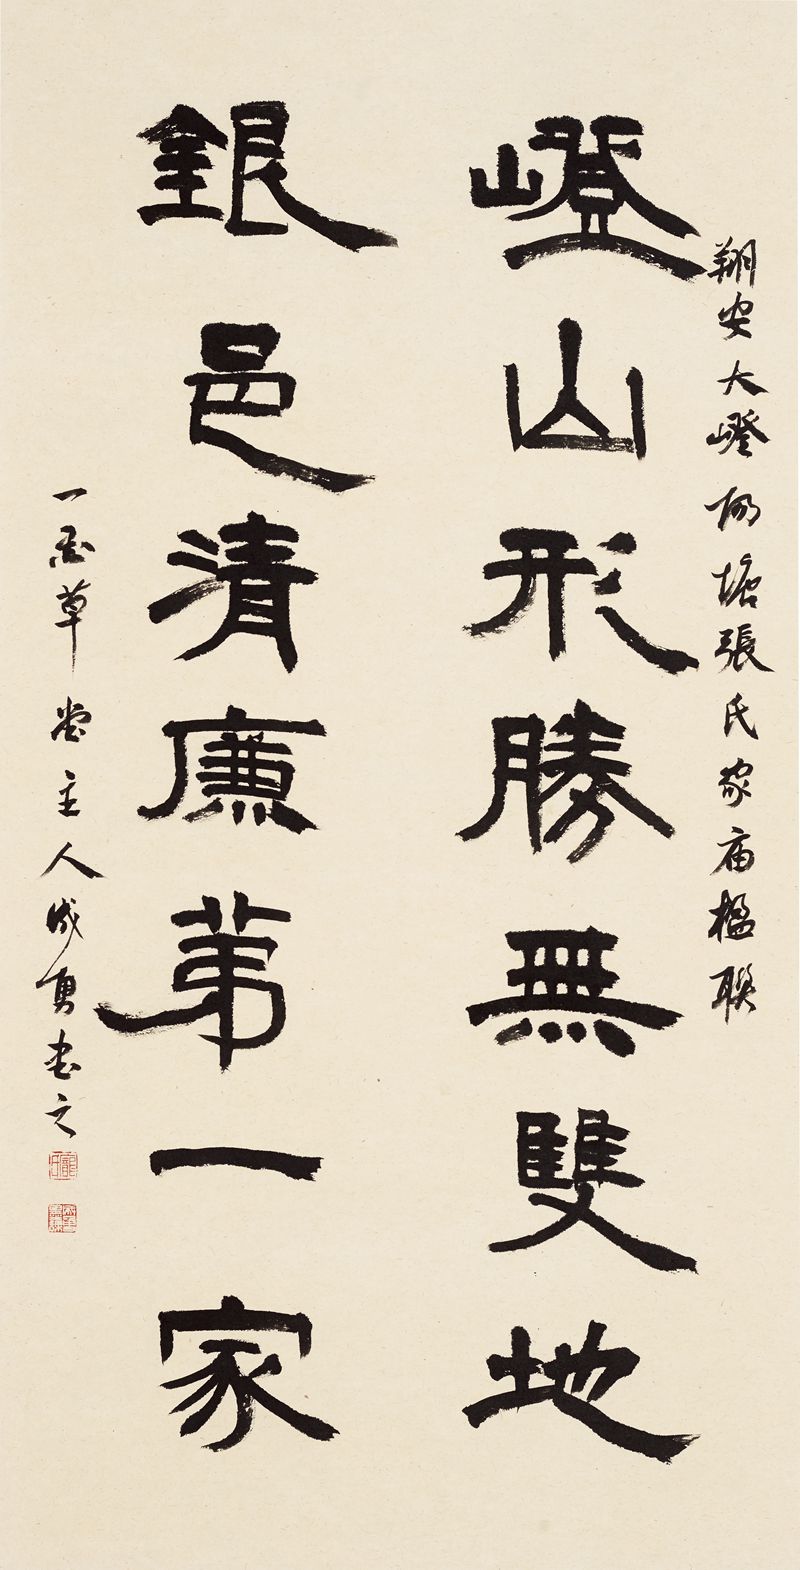 翔安大嶝阳塘張氏家庙楹聯
嶝山形勝無雙地
銀邑清廉苐一家
一墨草堂主人成勇书之